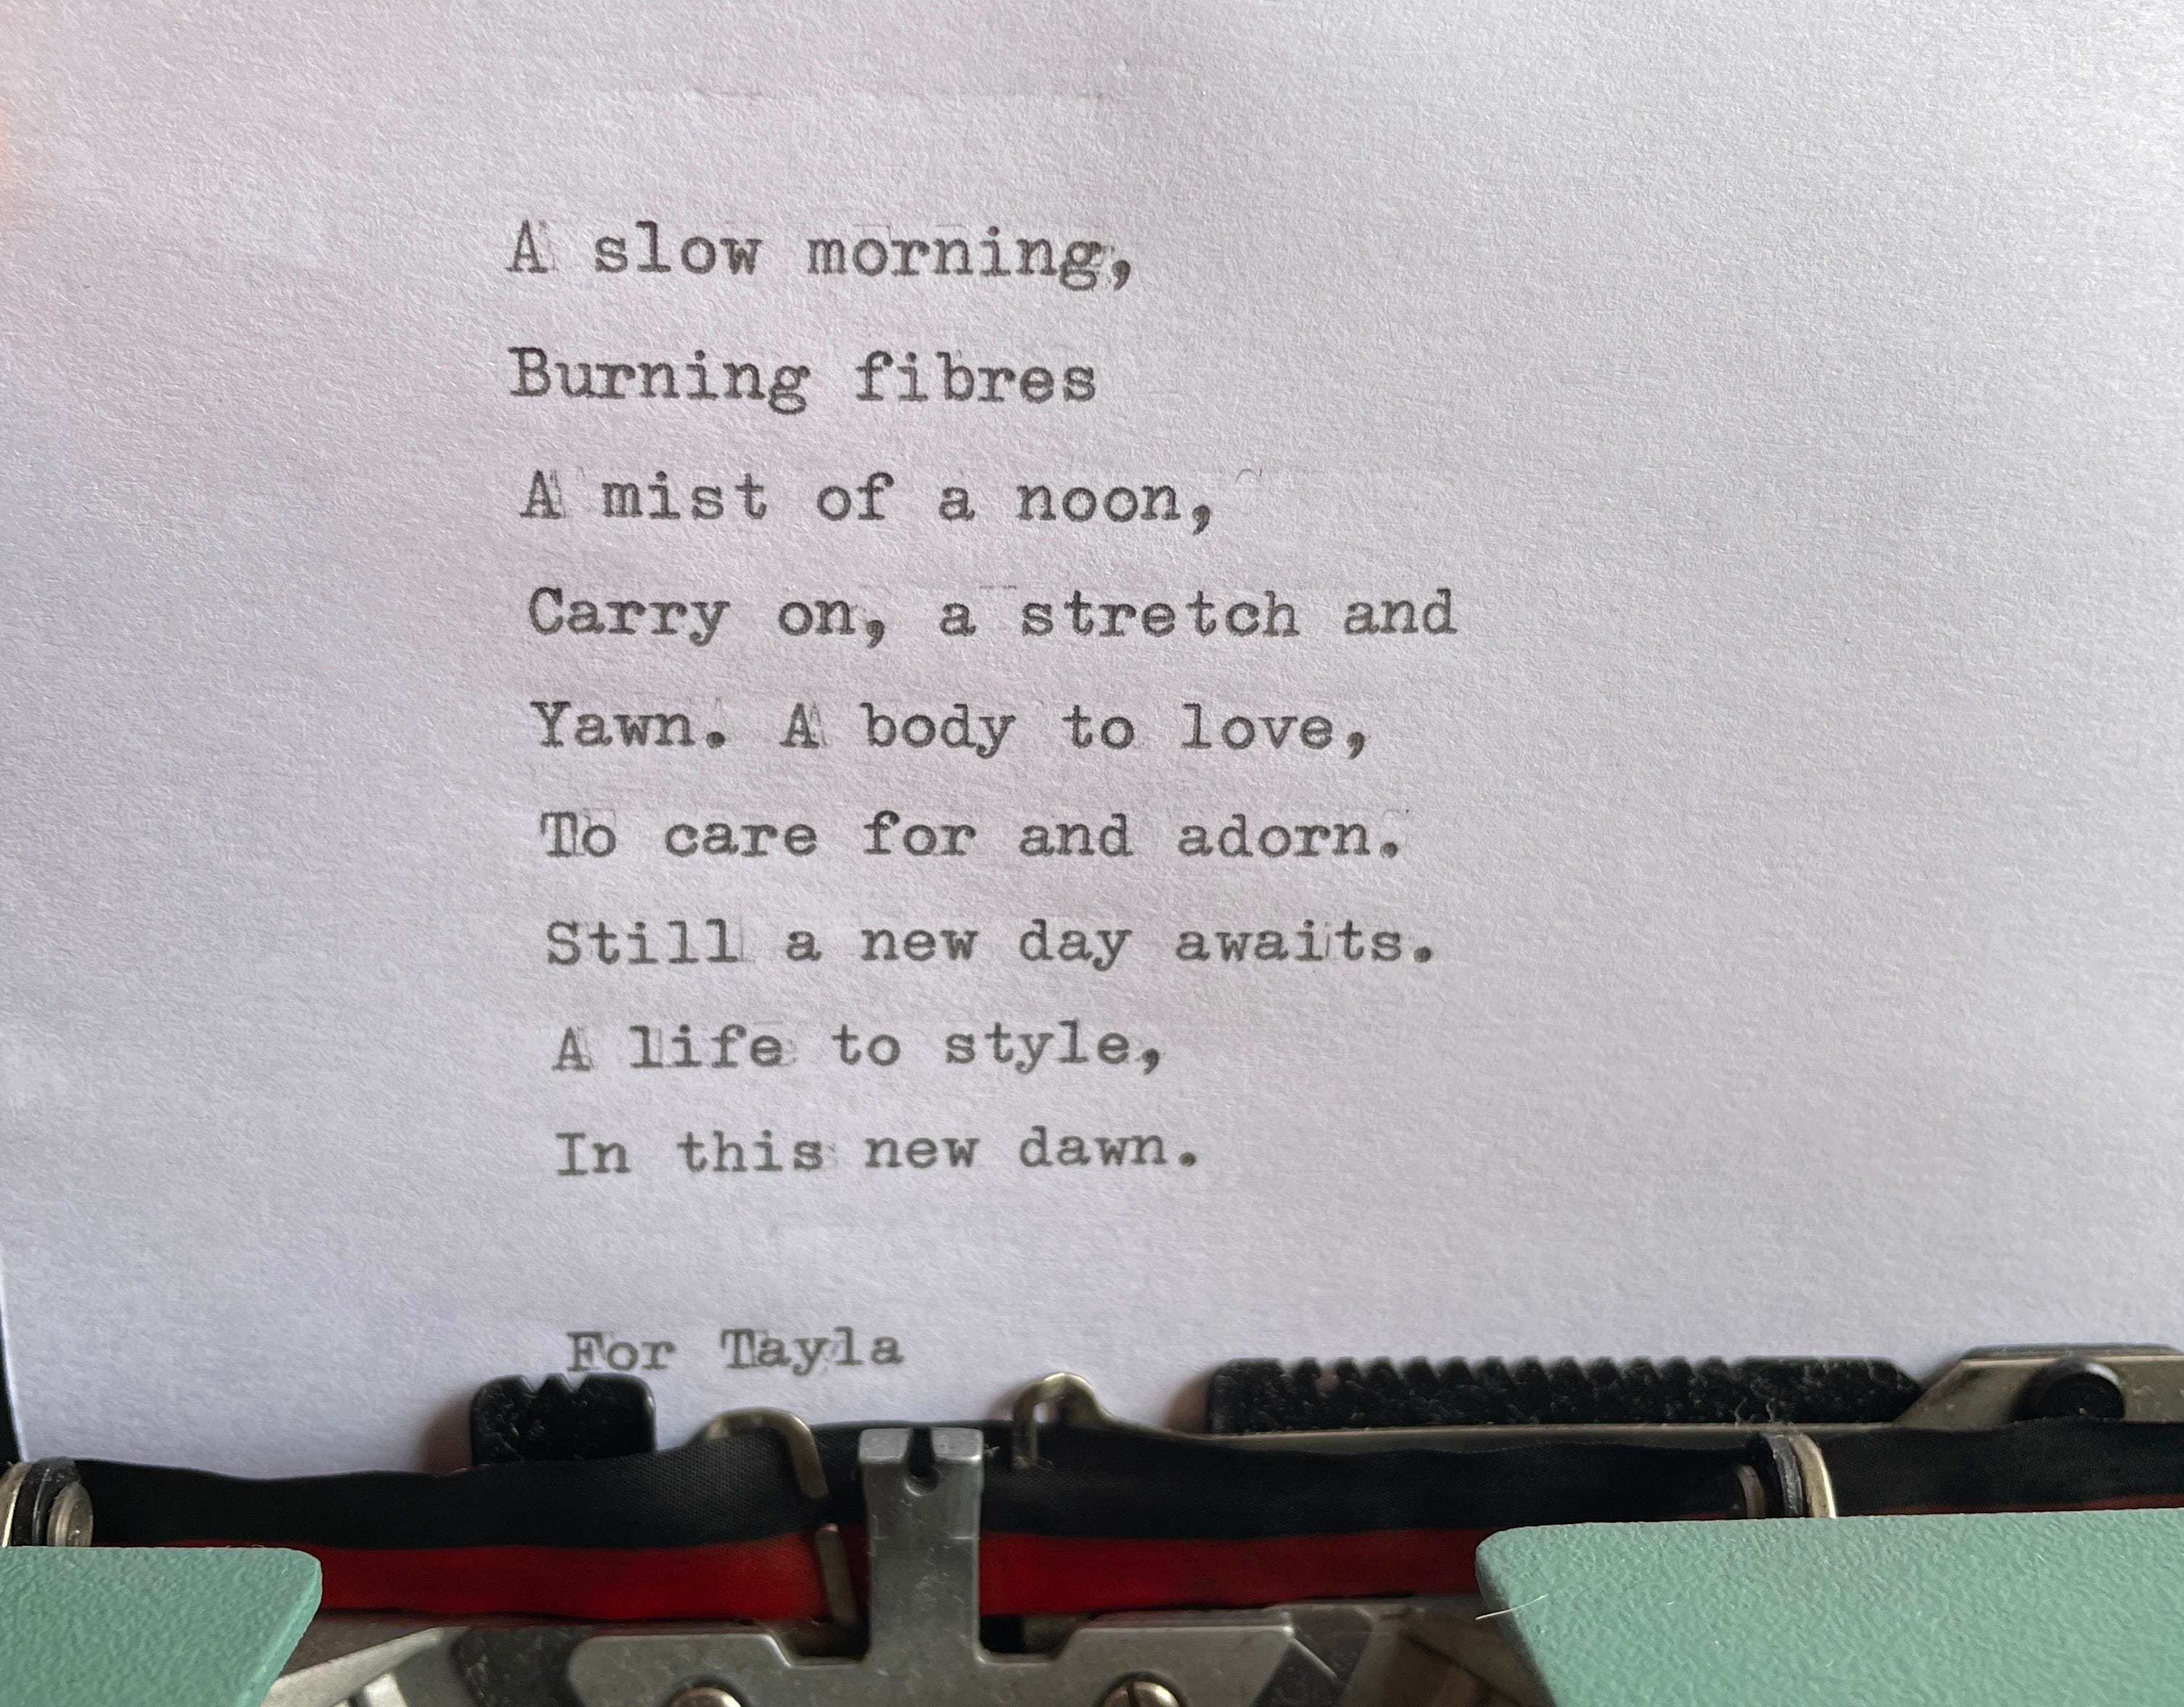 A slow morning,
Burning fibres
A mist of a noon,
Carry on, a stretch and
Yawn. A body to love,
To care for and adorn.
Still a new day awaits.
A life to style,
In this new dawn.
For Tayla